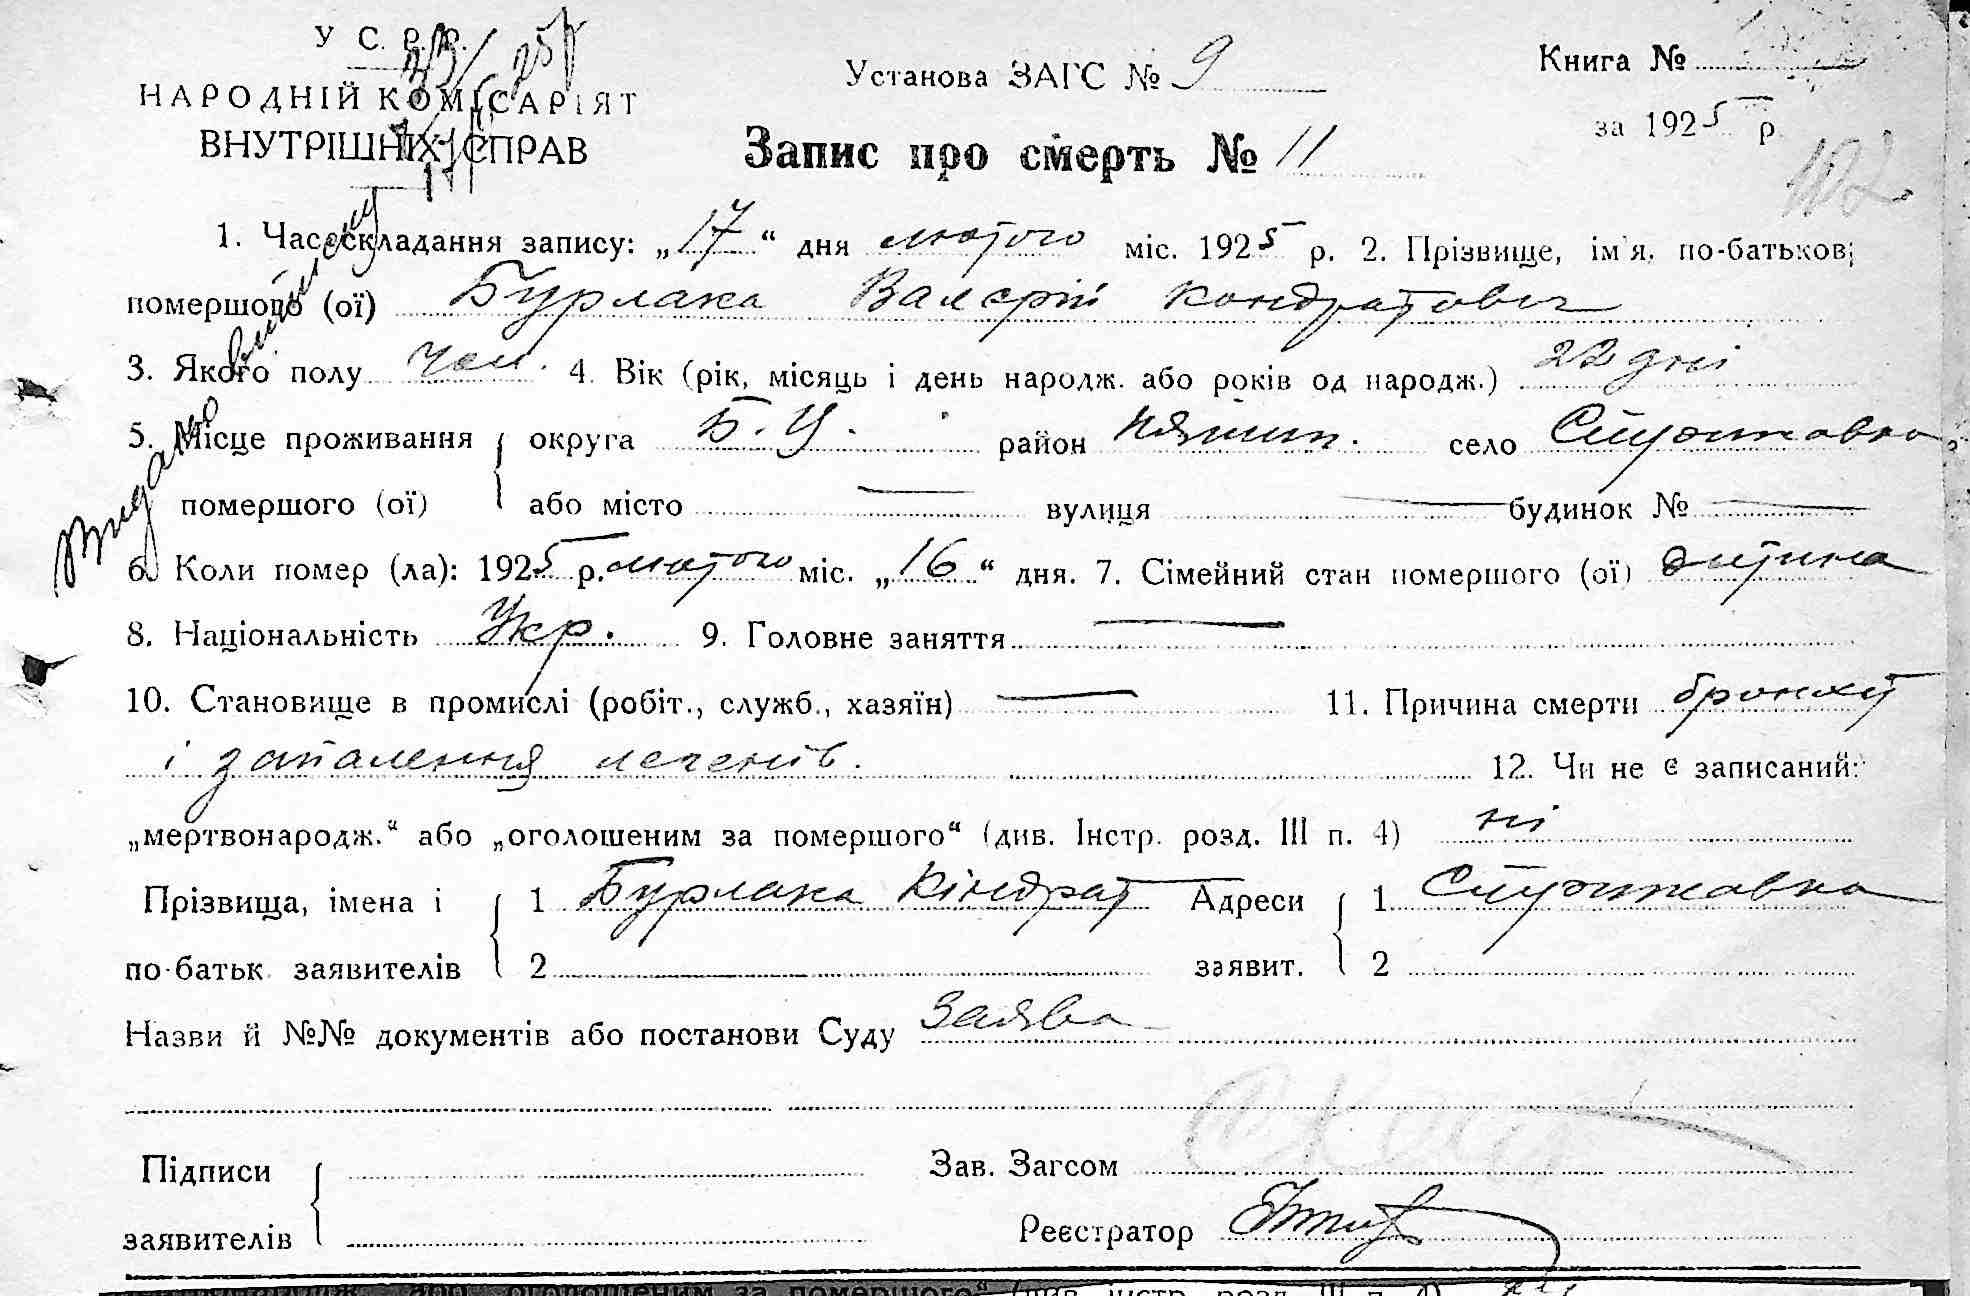 У С. Р. Р.
НАРОДНІЙ КОМІСАРІЯТ
ВНУТРІШНІХ СПРАВ
Установа ЗАГС № 9
Книга №
за 1925 р.
Запис про смерть № 11
102
Видано виписку
1. Час складання запису: „17“ дня лютого міс. 1925 р. 2. Прізвище, ім'я, по-батькові
помершого (ої) Бурлака Валєрій Кондратович
3. Якого полу чол. 4. Вік (рік, місяць і день народж. або років од народж.) 22 дні
5. Місце проживання округа Б. Ц. район село
помершого (ої) або місто — вулиця — будинок № —
6. Коли помер (ла): 1925 р. лютого міс. „16“ дня. 7. Сімейний стан помершого (ої) дитина
8. Національність Укр. 9. Головне заняття —
10. Становище в промислі (робіт., служб., хазяїн) — 11. Причина смерти бронхіт
і запалення легенів. 12. Чи не є записаний:
„мертвонародж.“ або „оголошеним за помершого“ (див. Інстр. розд. III п. 4) ні
Прізвища, імена і 1 Бурлака Кіндрат Адреси 1
по-батьк. заявителів 2 заявит. 2
Назви й №№ документів або постанови Суду Заява
Підписи
заявителів
Зав. Загсом
Реєстратор